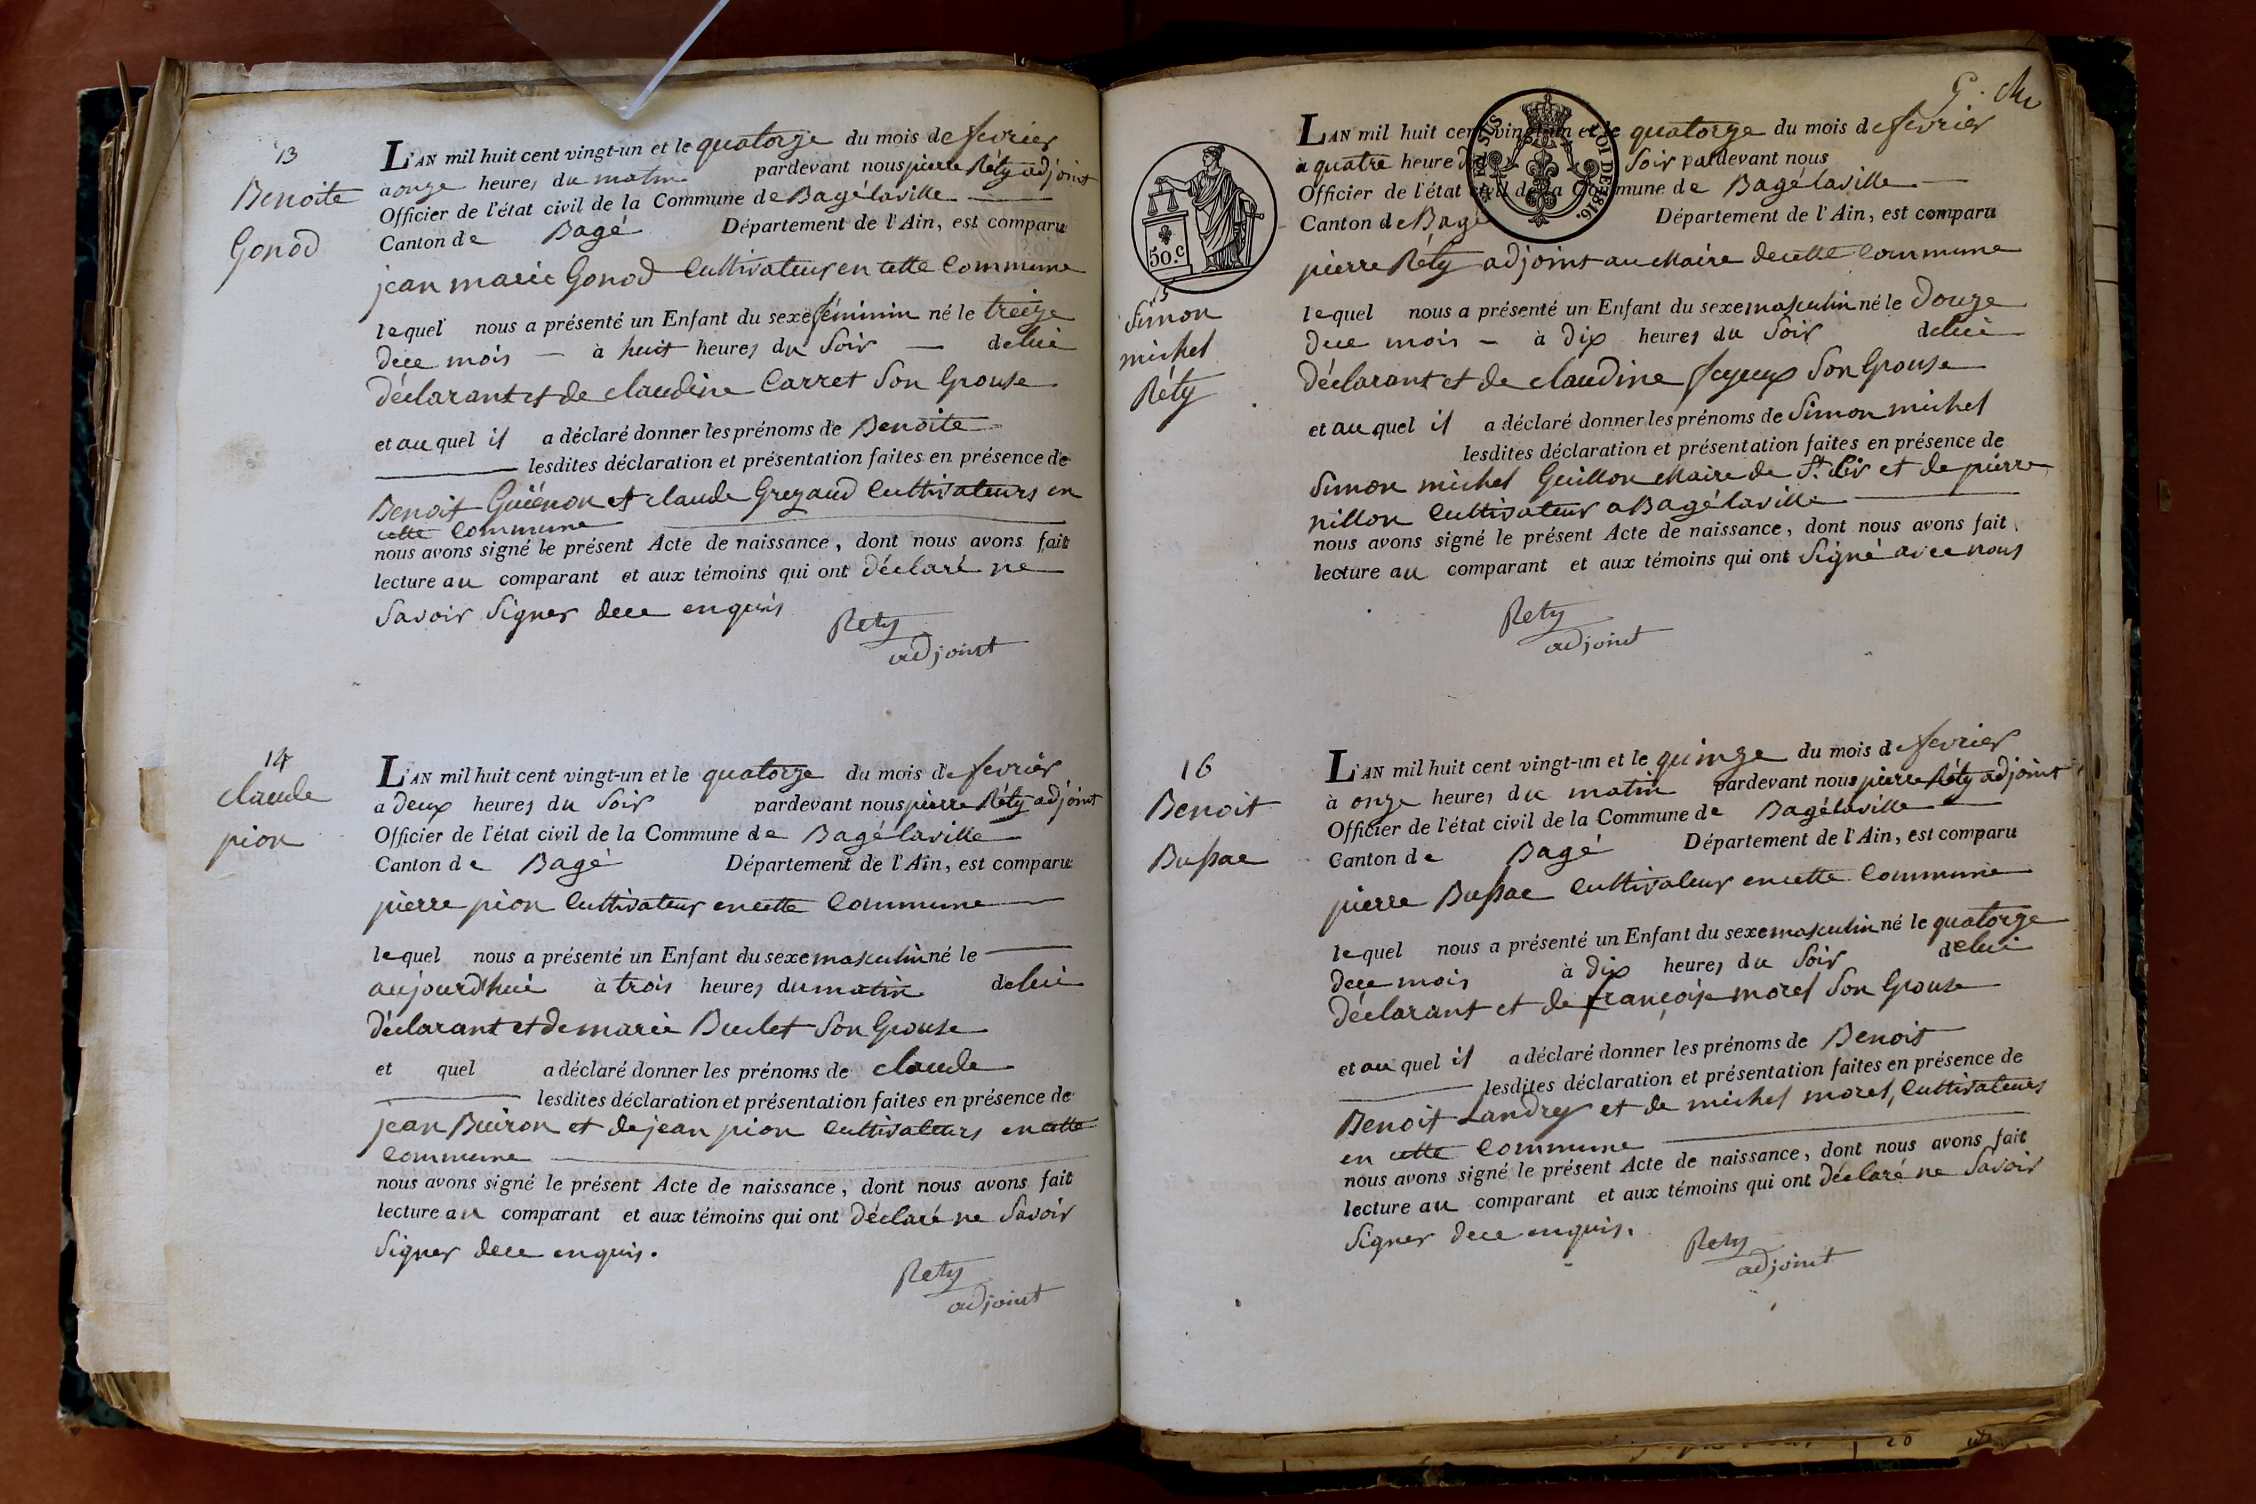 13
Benoite
Gonod
L'AN mil huit cent vingt-un et le quatorze du mois de fevrier
a onze heures du matin pardevant nous pierre Réty adjoint
Officier de l'état civil de la Commune de Bagélaville
Canton de Bagé Département de l'Ain, est comparu
jean marie Gonod Cultivateur en cette Commune
lequel nous a présenté un Enfant du sexe féminin né le treize
dece mois — à huit heures du Soir — delui
déclarant et de claudine Carret Son Epouse
et au quel il a déclaré donner les prénoms de Benoite
lesdites déclaration et présentation faites en présence de
Benoit Guiénon et claude Grezaud Cultivateurs en
cette Commune
nous avons signé le présent Acte de naissance, dont nous avons fait
lecture au comparant et aux témoins qui ont déclaré ne
Savoir Signer dece enquis
Rety
adjoint
14
claude
pion
L'AN mil huit cent vingt-un et le quatorze du mois de fevrier
à deux heures du Soir pardevant nous pierre Réty adjoint
Officier de l'état civil de la Commune de Bagélaville
Canton de Bagé Département de l'Ain, est comparu
pierre pion Cultivateur encette Commune
lequel nous a présenté un Enfant du sexe masculin né le
aujourd'hui à trois heures du matin delui
déclarant et de marie Buclet Son Epouse
et quel a déclaré donner les prénoms de claude
lesdites déclaration et présentation faites en présence de
jean Buiron et de jean pion Cultivateurs en cette
Commune
nous avons signé le présent Acte de naissance, dont nous avons fait
lecture au comparant et aux témoins qui ont déclaré ne Savoir
Signer dece enquis.
Rety
adjoint
50.c
LOI DE 1816.
15
Simon
michel
Réty
L'AN mil huit cent vingt-un et le quatorze du mois de fevrier
à quatre heure du Soir pardevant nous
Officier de l'état civil de la Commune de Bagélaville
Canton de Bagé Département de l'Ain, est comparu
pierre Réty adjoint au Maire decette Commune
lequel nous a présenté un Enfant du sexe masculin né le Douze
dece mois — à dix heures du Soir delui
déclarant et de claudine feyeux Son Epouse
et au quel il a déclaré donner les prénoms de Simon michel
lesdites déclaration et présentation faites en présence de
Simon michel Guillon Maire de St. Cir et de pierre
nillon Cultivateur a Bagélaville
nous avons signé le présent Acte de naissance, dont nous avons fait
lecture au comparant et aux témoins qui ont Signé avec nous
Rety
adjoint
16
Benoit
Bussac
L'AN mil huit cent vingt-un et le quinze du mois de fevrier
à onze heures du matin pardevant nous pierre Réty adjoint
Officier de l'état civil de la Commune de Bagélaville
Canton de Bagé Département de l'Ain, est comparu
pierre Bussac Cultivateur encette Commune
lequel nous a présenté un Enfant du sexe masculin né le quatorze
dece mois à dix heures du Soir delui
déclarant et de françoise morel Son Epouse
et au quel il a déclaré donner les prénoms de Benoit
lesdites déclaration et présentation faites en présence de
Benoit Landry et de michel morel, Cultivateurs
en cette Commune
nous avons signé le présent Acte de naissance, dont nous avons fait
lecture au comparant et aux témoins qui ont déclaré ne Savoir
Signer dece enquis.
Rety
adjoint